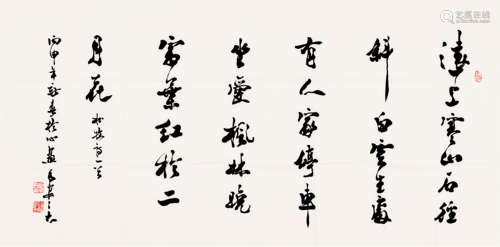 遠上寒山石徑
斜白雲生處
有人家停車
坐愛楓林晚
霜葉紅於二
月花 杜牧詩一首
丙申年